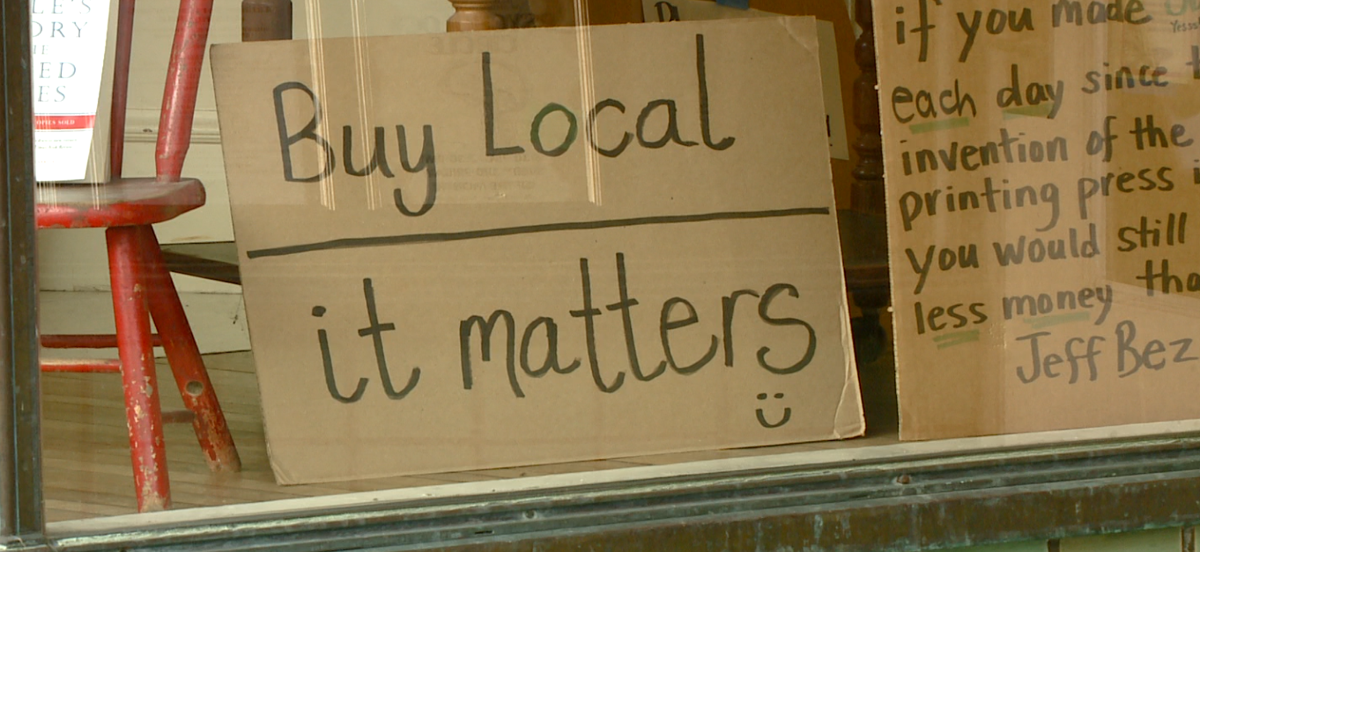 Buy Local
it matters
if you made
each day since
invention of the
printing press
you would still
less money
Jeff Bez